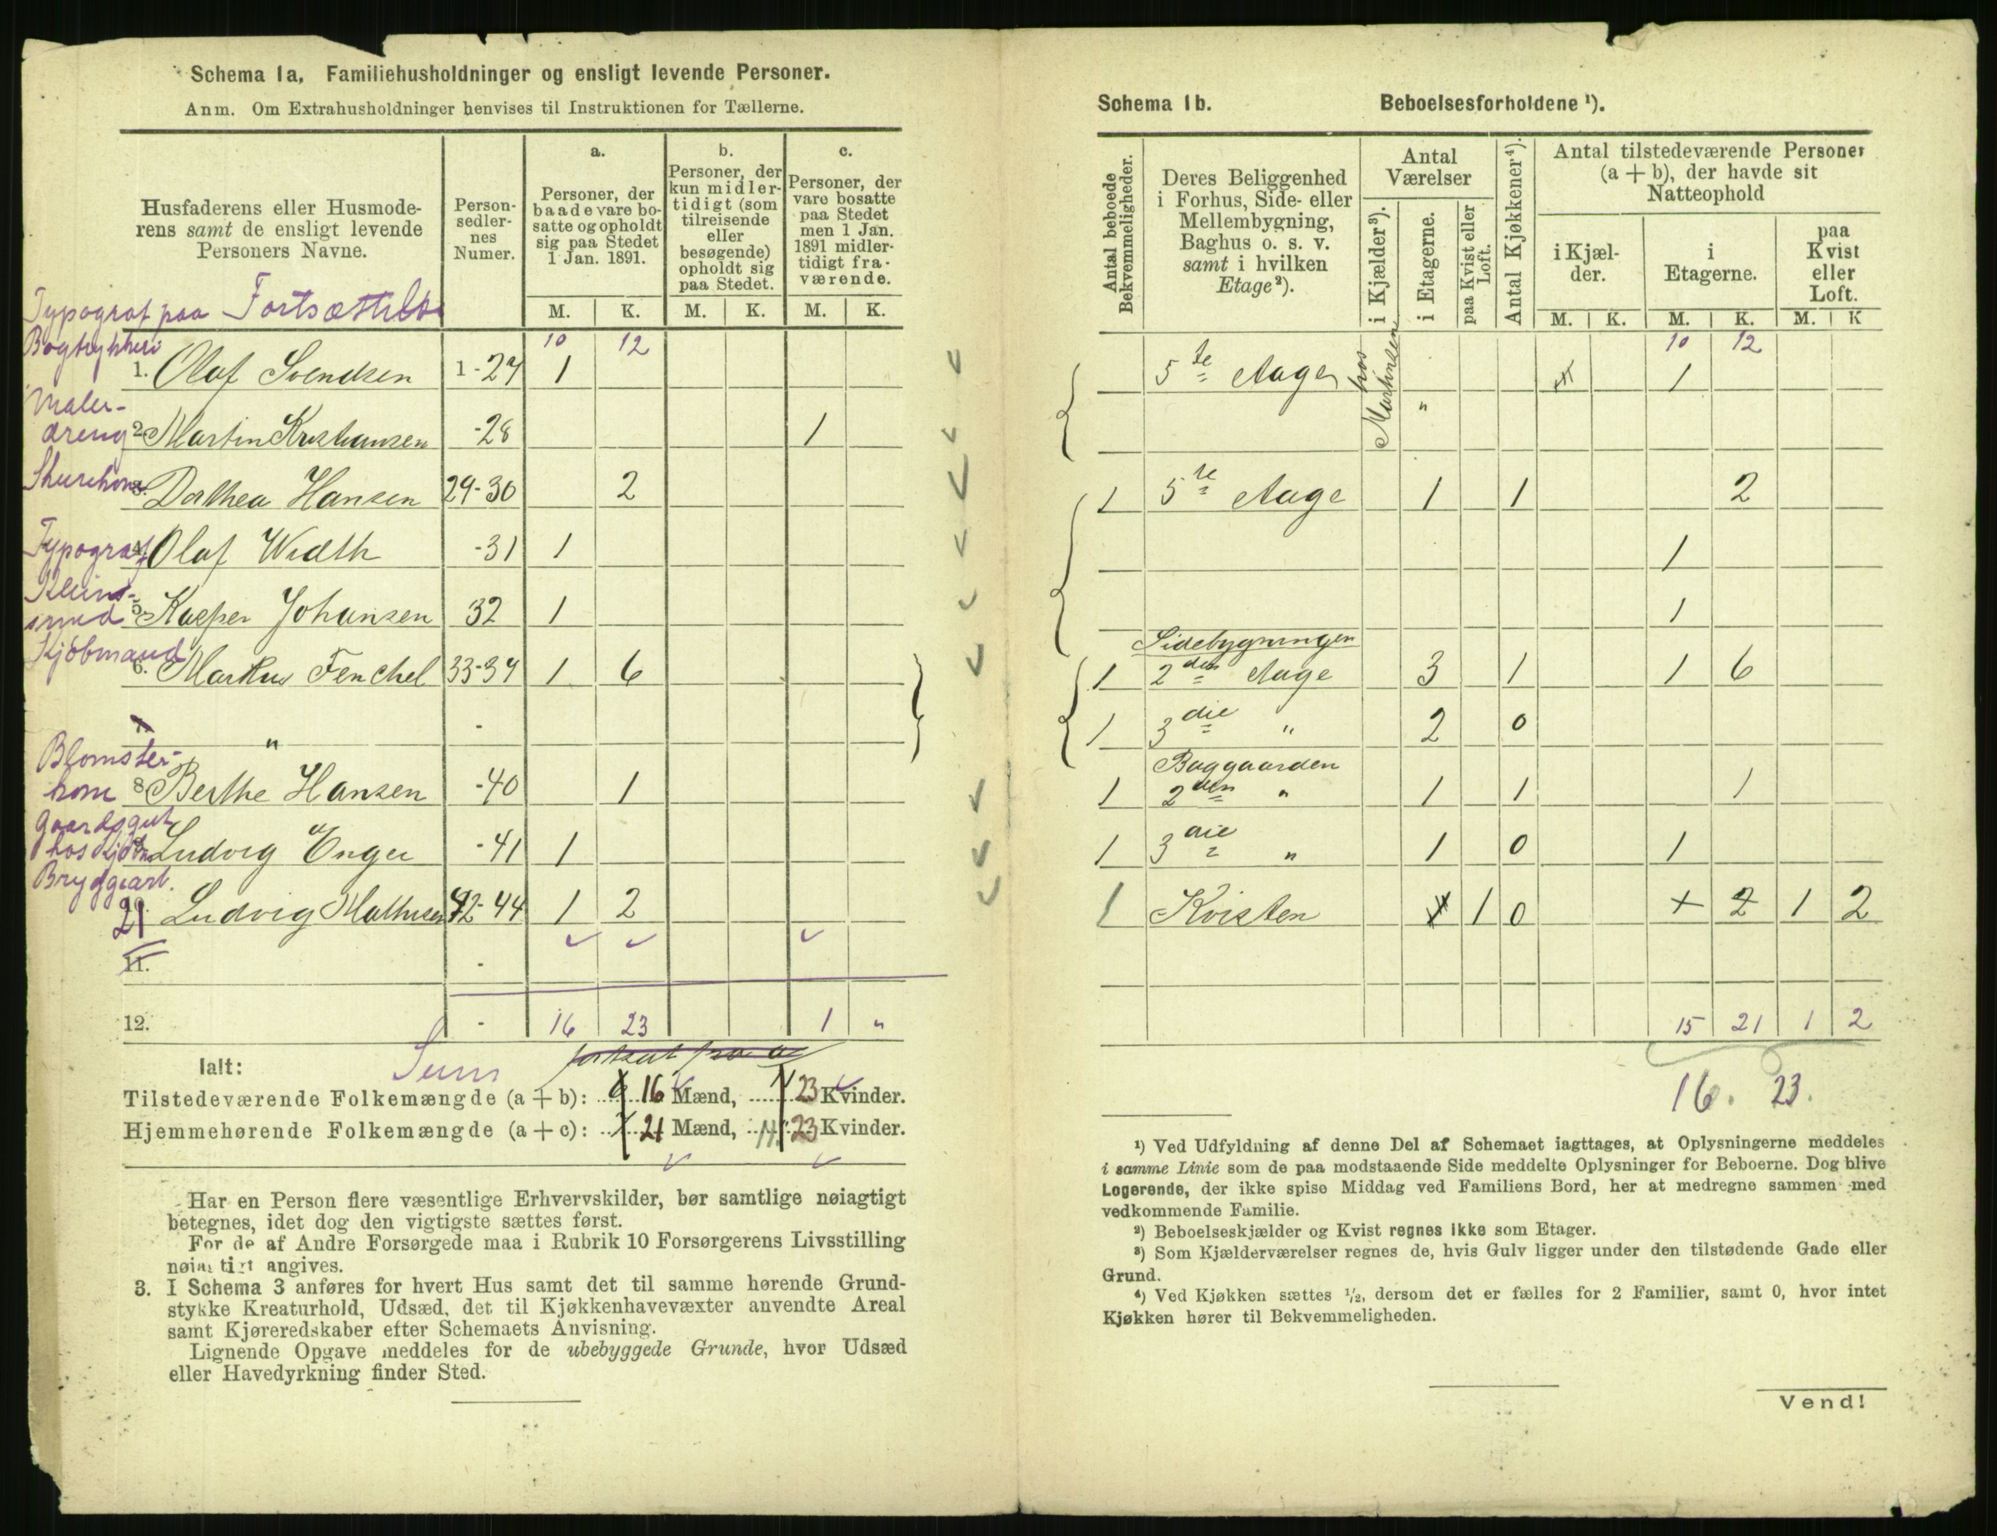 Schema 1a, Familiehusholdninger og ensligt levende Personer.
Anm. Om Extrahusholdninger henvises til Instruktionen for Tællerne.
Husfaderens eller Husmoderens samt de ensligt levende Personers Navne.
Person-sedlernes Numer.
a. Personer, der baade vare bosatte og opholdt sig paa Stedet 1 Jan. 1891.
b. Personer, der kun midlertidigt (som tilreisende eller besøgende) opholdt sig paa Stedet.
c. Personer, der vare bosatte paa Stedet men 1 Jan. 1891 midlertidigt fraværende.
M. K. M. K. M. K.
Fortsættelse 10 12
Typograf paa Bogtrykkeri 1. Olaf Svendsen 1-27 1
Malerdreng 2. Martin Kristiansen -28 1
3. Dorthea Hansen 29-30 2
Typograf 4. Olaf Width -31 1
Kleinsmed 5. Kasper Johansen 32 1
Kjöbmand 6. Markus Fenchel 33-39 1 6
" -
Blomsterkone 8. Berthe Hansen -40 1
Gaardsgut hos Kjöbm Ludvig Enger -41 1
Bryggeriarb. 21 Ludvig Mathisen 42-44 1 2
11. -
12. - 16 23 1 "
Ialt: Sum
Tilstedeværende Folkemængde (a + b): 16 Mænd, 23 Kvinder.
Hjemmehørende Folkemængde (a + c): 21 Mænd, 23 Kvinder.
Har en Person flere væsentlige Erhvervskilder, bør samtlige nøiagtigt
betegnes, idet dog den vigtigste sættes først.
For de af Andre Forsørgede maa i Rubrik 10 Forsørgerens Livsstilling
nøiagtigt angives.
3. I Schema 3 anføres for hvert Hus samt det til samme hørende Grund-
stykke Kreaturhold, Udsæd, det til Kjøkkenhavevæxter anvendte Areal
samt Kjøreredskaber efter Schemaets Anvisning.
Lignende Opgave meddeles for de ubebyggede Grunde, hvor Udsæd
eller Havedyrkning finder Sted.
Schema 1b. Beboelsesforholdene ¹).
Antal beboede Bekvemmeligheder.
Deres Beliggenhed i Forhus, Side- eller Mellembygning, Baghus o. s. v. samt i hvilken Etage²).
Antal Værelser
i Kjælder³).
i Etagerne.
paa Kvist eller Loft.
Antal Kjøkkener⁴).
Antal tilstedeværende Personer (a + b), der havde sit Natteophold
i Kjælder.
i Etagerne.
paa Kvist eller Loft.
M. K. M. K. M. K
10 12
5te Etage hos Martinsen 1
"
1 5te Etage 1 1 2
1
1
Sidebygningen
1 2den Etage 3 1 1 6
1 3die " 2 0
Baggaarden
1 2den " 1 1 1
1 3die " 1 0 1
1 Kvisten 1 0 2 1 2
15 21 1 2
16. 23.
¹) Ved Udfyldning af denne Del af Schemaet iagttages, at Oplysningerne meddeles
i samme Linie som de paa modstaaende Side meddelte Oplysninger for Beboerne. Dog blive
Logerende, der ikke spise Middag ved Familiens Bord, her at medregne sammen med
vedkommende Familie.
²) Beboelseskjælder og Kvist regnes ikke som Etager.
³) Som Kjælderværelser regnes de, hvis Gulv ligger under den tilstødende Gade eller
Grund.
⁴) Ved Kjøkken sættes ½, dersom det er fælles for 2 Familier, samt 0, hvor intet
Kjøkken hører til Bekvemmeligheden.
Vend!